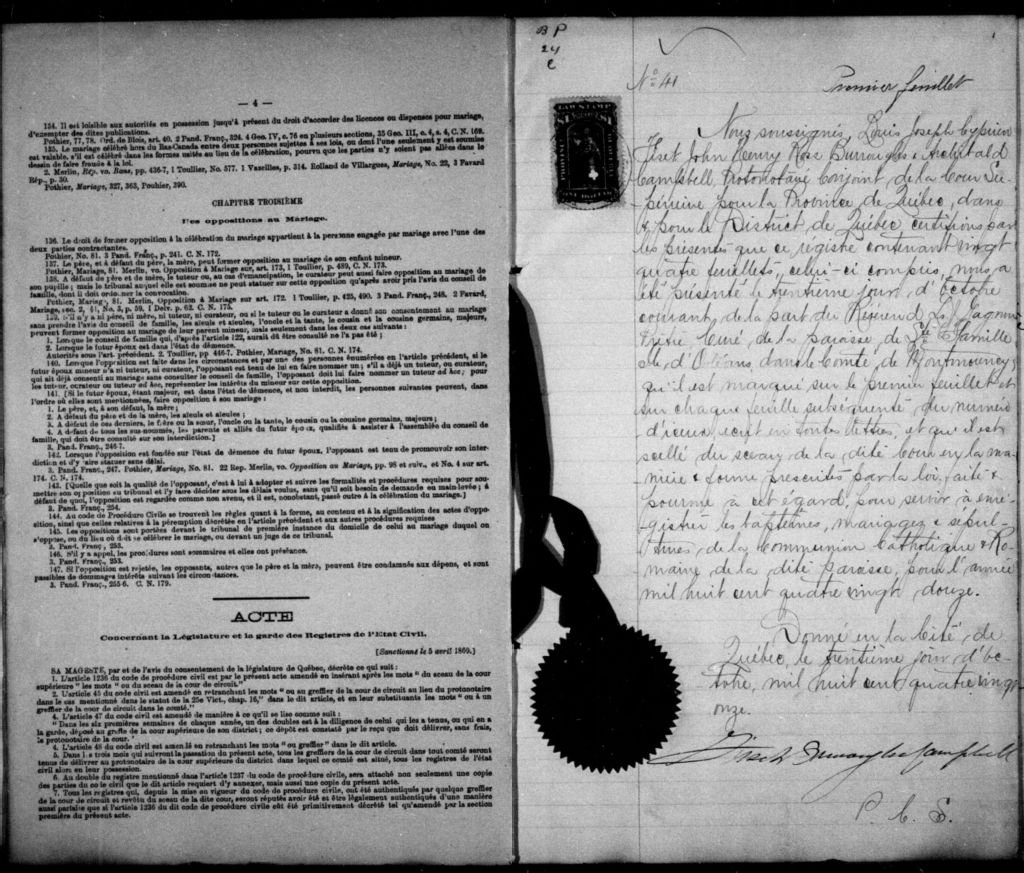 — 4 —
134. Il est loisible aux autorités en possession jusqu'à présent du droit d'accorder des licences ou dispenses pour mariage,
d'exempter des dites publications.
Pothier, 77, 78. Ord. de Blois, art. 40. 2 Pand. Franç., 324. 4 Geo. IV, c. 76 en plusieurs sections, 35 Geo. III, c. 4, s. 4, C. N. 169.
135. Le mariage célébré hors du Bas-Canada entre deux personnes sujettes à ses lois, ou dont l'une seulement y est soumise
est valable, s'il est célébré dans les formes usitées au lieu de la célébration, pourvu que les parties n'y soient pas allées dans le
dessin de faire fraude à la loi.
2. Merlin, Rép. vo. Bans, pp. 436-7, 1 Toullier, No. 577. 1 Vazeilles, p. 314. Rolland de Villargues, Mariage, No. 22, 3 Favard
Rép., p. 50.
Pothier, Mariage, 327, 363, Pouhier, 390.
CHAPITRE TROISIÈME
Des oppositions au Mariage.
136. Le droit de former opposition à la célébration du mariage appartient à la personne engagée par mariage avec l'une des
deux parties contractantes.
Pothier, No. 81. 3 Pand. Franç., p. 241. C. N. 172.
137. Le père, et à défaut du père, la mère, peut former opposition au mariage de son enfant mineur.
Pothier, Mariage, 81. Merlin, vo. Opposition à Mariage sur, art. 173, 1 Toullier, p. 489, C. N. 173.
138. A défaut de père et de mère, le tuteur ou, au cas d'émancipation, le curateur peut aussi faire opposition au mariage de
son pupille; mais le tribunal auquel elle est soumise ne peut statuer sur cette opposition qu'après avoir pris l'avis du conseil de
famille, dont il doit ordonner la convocation.
Pothier, Mariage, 81. Merlin, Opposition à Mariage sur art. 172. 1 Toullier, p. 425, 490. 3 Pand. Franç., 248. 2 Favard,
Mariage, sec. 2, §1, No. 3, p. 59. 1 Delv. p. 62. C. N. 175.
139. S'il n'y a ni père, ni mère, ni tuteur, ni curateur, ou si le tuteur ou le curateur a donné son consentement au mariage
sans prendre l'avis du conseil de famille, les aïeuls et aïeules, l'oncle et la tante, le cousin et la cousine germains, majeurs,
peuvent former opposition au mariage de leur parent mineur, mais seulement dans les deux cas suivants:
1. Lorsque le conseil de famille qui, d'après l'article 122, aurait dû être consulté ne l'a pas été;
2. Lorsque le futur époux est dans l'état de démence.
Autorités sous l'art. précédent. 2. Toullier, pp 446-7. Pothier, Mariage, No. 81. C. N. 174.
140. Lorsque l'opposition est faite dans les circonstances et par une des personnes énumérées en l'article précédent, si le
futur époux mineur n'a ni tuteur, ni curateur, l'opposant est tenu de lui en faire nommer un; s'il a déjà un tuteur, ou curateur,
qui ait déjà consenti au mariage sans consulter le conseil de famille, l'opposant doit lui faire nommer un tuteur ad hoc; pour
les tuteur, curateur ou tuteur ad hoc, représenter les intérêts du mineur sur cette opposition.
141. [Si le futur époux, étant majeur, est dans l'état de démence, et non interdit, les personnes suivantes peuvent, dans
l'ordre où elles sont mentionnées, faire opposition à son mariage:
1. Le père, et, à son défaut, la mère;
2. A défaut du père et de la mère, les aïeuls et aïeules;
3. A défaut de ces derniers, le frère ou la sœur, l'oncle ou la tante, le cousin ou la cousine germains, majeurs;
4. A défaut de tous les sus-nommés, les parents et alliés du futur époux, qualifiés à assister à l'assemblée du conseil de
famille, qui doit être consulté sur son interdiction.]
3. Pand. Franç., 246-7.
142. Lorsque l'opposition est fondée sur l'état de démence du futur époux, l'opposant est tenu de promouvoir son inter-
diction et d'y faire statuer sans délai.
3. Pand. Franç., 247. Pothier, Mariage, No. 81. 22 Rep. Merlin, vo. Opposition au Mariage, pp. 98 et suiv., et No. 4 sur art.
174. C. N. 174.
143. [Quelle que soit la qualité de l'opposant, c'est à lui à adopter et suivre les formalités et procédures requises pour sou-
mettre son opposition au tribunal et l'y faire décider sous les délais voulus, sans qu'il soit besoin de demande en main-levée; à
défaut de quoi, l'opposition est regardée comme non avenu, et il est, nonobstant, passé outre à la célébration du mariage.]
3. Pand. Franç., 254.
144. Au code de Procédure Civile se trouvent les règles quant à la forme, au contenu et à la signification des actes d'oppo-
sition, ainsi que celles relatives à la péremption décrétée en l'article précédent et aux autres procédures requises
145. Les oppositions sont portées devant le tribunal de première instance du domicile de celui au mariage duquel on
s'oppose, ou du lieu où doit se célébrer le mariage, ou devant un juge de ce tribunal.
3. Pand. Franç., 253.
146. S'il y a appel, les procédures sont sommaires et elles ont préséance.
3. Pand. Franç., 253.
147. Si l'opposition est rejetée, les opposants, autres que le père et la mère, peuvent être condamnés aux dépens, et sont
passibles de dommages intérêts suivant les circonstances.
3. Pand. Franç., 255-6. C. N. 179.
ACTE
Concernant la Législature et la garde des Registres de l'Etat Civil.
[Sanctionné le 5 avril 1869.]
SA MAGESTÉ, par et de l'avis du consentement de la législature de Québec, décrète ce qui suit:
1. L'article 1236 du code de procédure civil est par le présent acte amendé en insérant après les mots "du sceau de la cour
supérieure" les mots "ou du sceau de la cour de circuit."
2. L'article 45 du code civil est amendé en retranchant les mots "ou au greffier de la cour de circuit au lieu du protonotaire
dans le cas mentionné dans le statut de la 25e Vict., chap. 16," dans le dit article, et en leur substituant les mots "ou à un
greffier de la cour de circuit dans le comté."
4. L'article 47 du code civil est amendé de manière à ce qu'il se lise comme suit:
"Dans les six premières semaines de chaque année, un des doubles est à la diligence de celui qui les a tenus, ou qui en a
la garde, déposé au greffe de la cour supérieure de son district; ce dépôt est constaté par le reçu que doit délivrer, sans frais,
le protonotaire de la cour."
4. L'article 48 du code civil est amendé en retranchant les mots "ou greffier" dans le dit article.
5. Dans les trois mois qui suivront la passation du présent acte, tous les greffiers de la cour de circuit dans tout comté seront
tenus de délivrer au protonotaire de la cour supérieure du district dans lequel ce comté est situé, tous les registres de l'état
civil alors en leur possession.
6. Au double du registre mentionné dans l'article 1237 du code de procédure civile, sera attaché non seulement une copie
des parties du code civil que le dit article requiert d'y annexer, mais aussi une copie du présent acte.
7. Tous les registres qui, depuis la mise en vigueur du code de procédure civile, ont été authentiqués par quelque greffier
de la cour de circuit et revêtu du sceau de la dite cour, seront réputés avoir été et être légalement authentiqués d'une manière
aussi parfaite que si l'article 1236 du dit code de procédure civile eût été primitivement décrété tel qu'amendé par la section
première du présent acte.
B P
24
c
No 41
Premier feuillet
LAW STAMP
Nous soussignés, Louis Joseph Cyprien
Fiset John Henry Rose Burroughs & Archibald
Campbell, Protonotaire Conjoint, de la Cour Su-
périeure pour la Province de Québec, dans
& pour le District de Québec certifions par
les présentes que ce registre contenant vingt
quatre feuillets, celui-ci compris, nous a
été présenté le trentième jour d'octobre
courant, de la part du Révérend
Prêtre Curé, de la paroisse de Ste Famille
Ile d'Orléans, dans le Comté, de Montmorency,
qu'il est marqué sur le premier feuillet et
sur chaque feuille subséquente, du numéro
d'iceux écrit en toutes lettres, et qu'il est
scellé du sceau de la dite Cour en la ma-
nière & forme prescrites par la loi, faite &
pourvue à cet égard, pour servir à enre-
gistrer les baptêmes, mariages & sépul-
tures, de la Communion Catholique & Ro-
maine de la dite paroisse, pour l'année
mil huit cent quatre vingt douze.
Donné en la Cité de
Québec, le trentième jour d'oc-
tobre, mil huit cent quatre vingt
onze.
Fiset Burroughs Campbell
P. C. S.